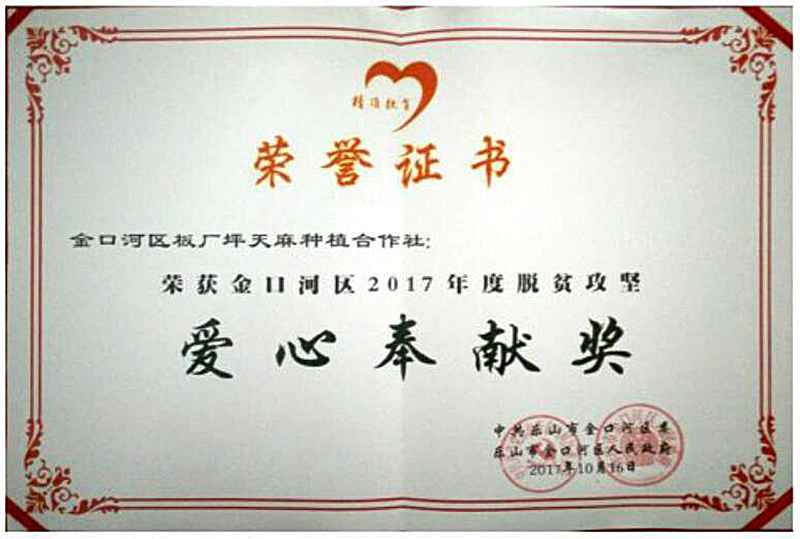 精准扶贫
荣誉证书
金口河区板厂坪天麻种植合作社:
荣获金口河区2017年度脱贫攻坚
爱心奉献奖
中共乐山市金口河区委
乐山市金口河区人民政府
2017年10月16日